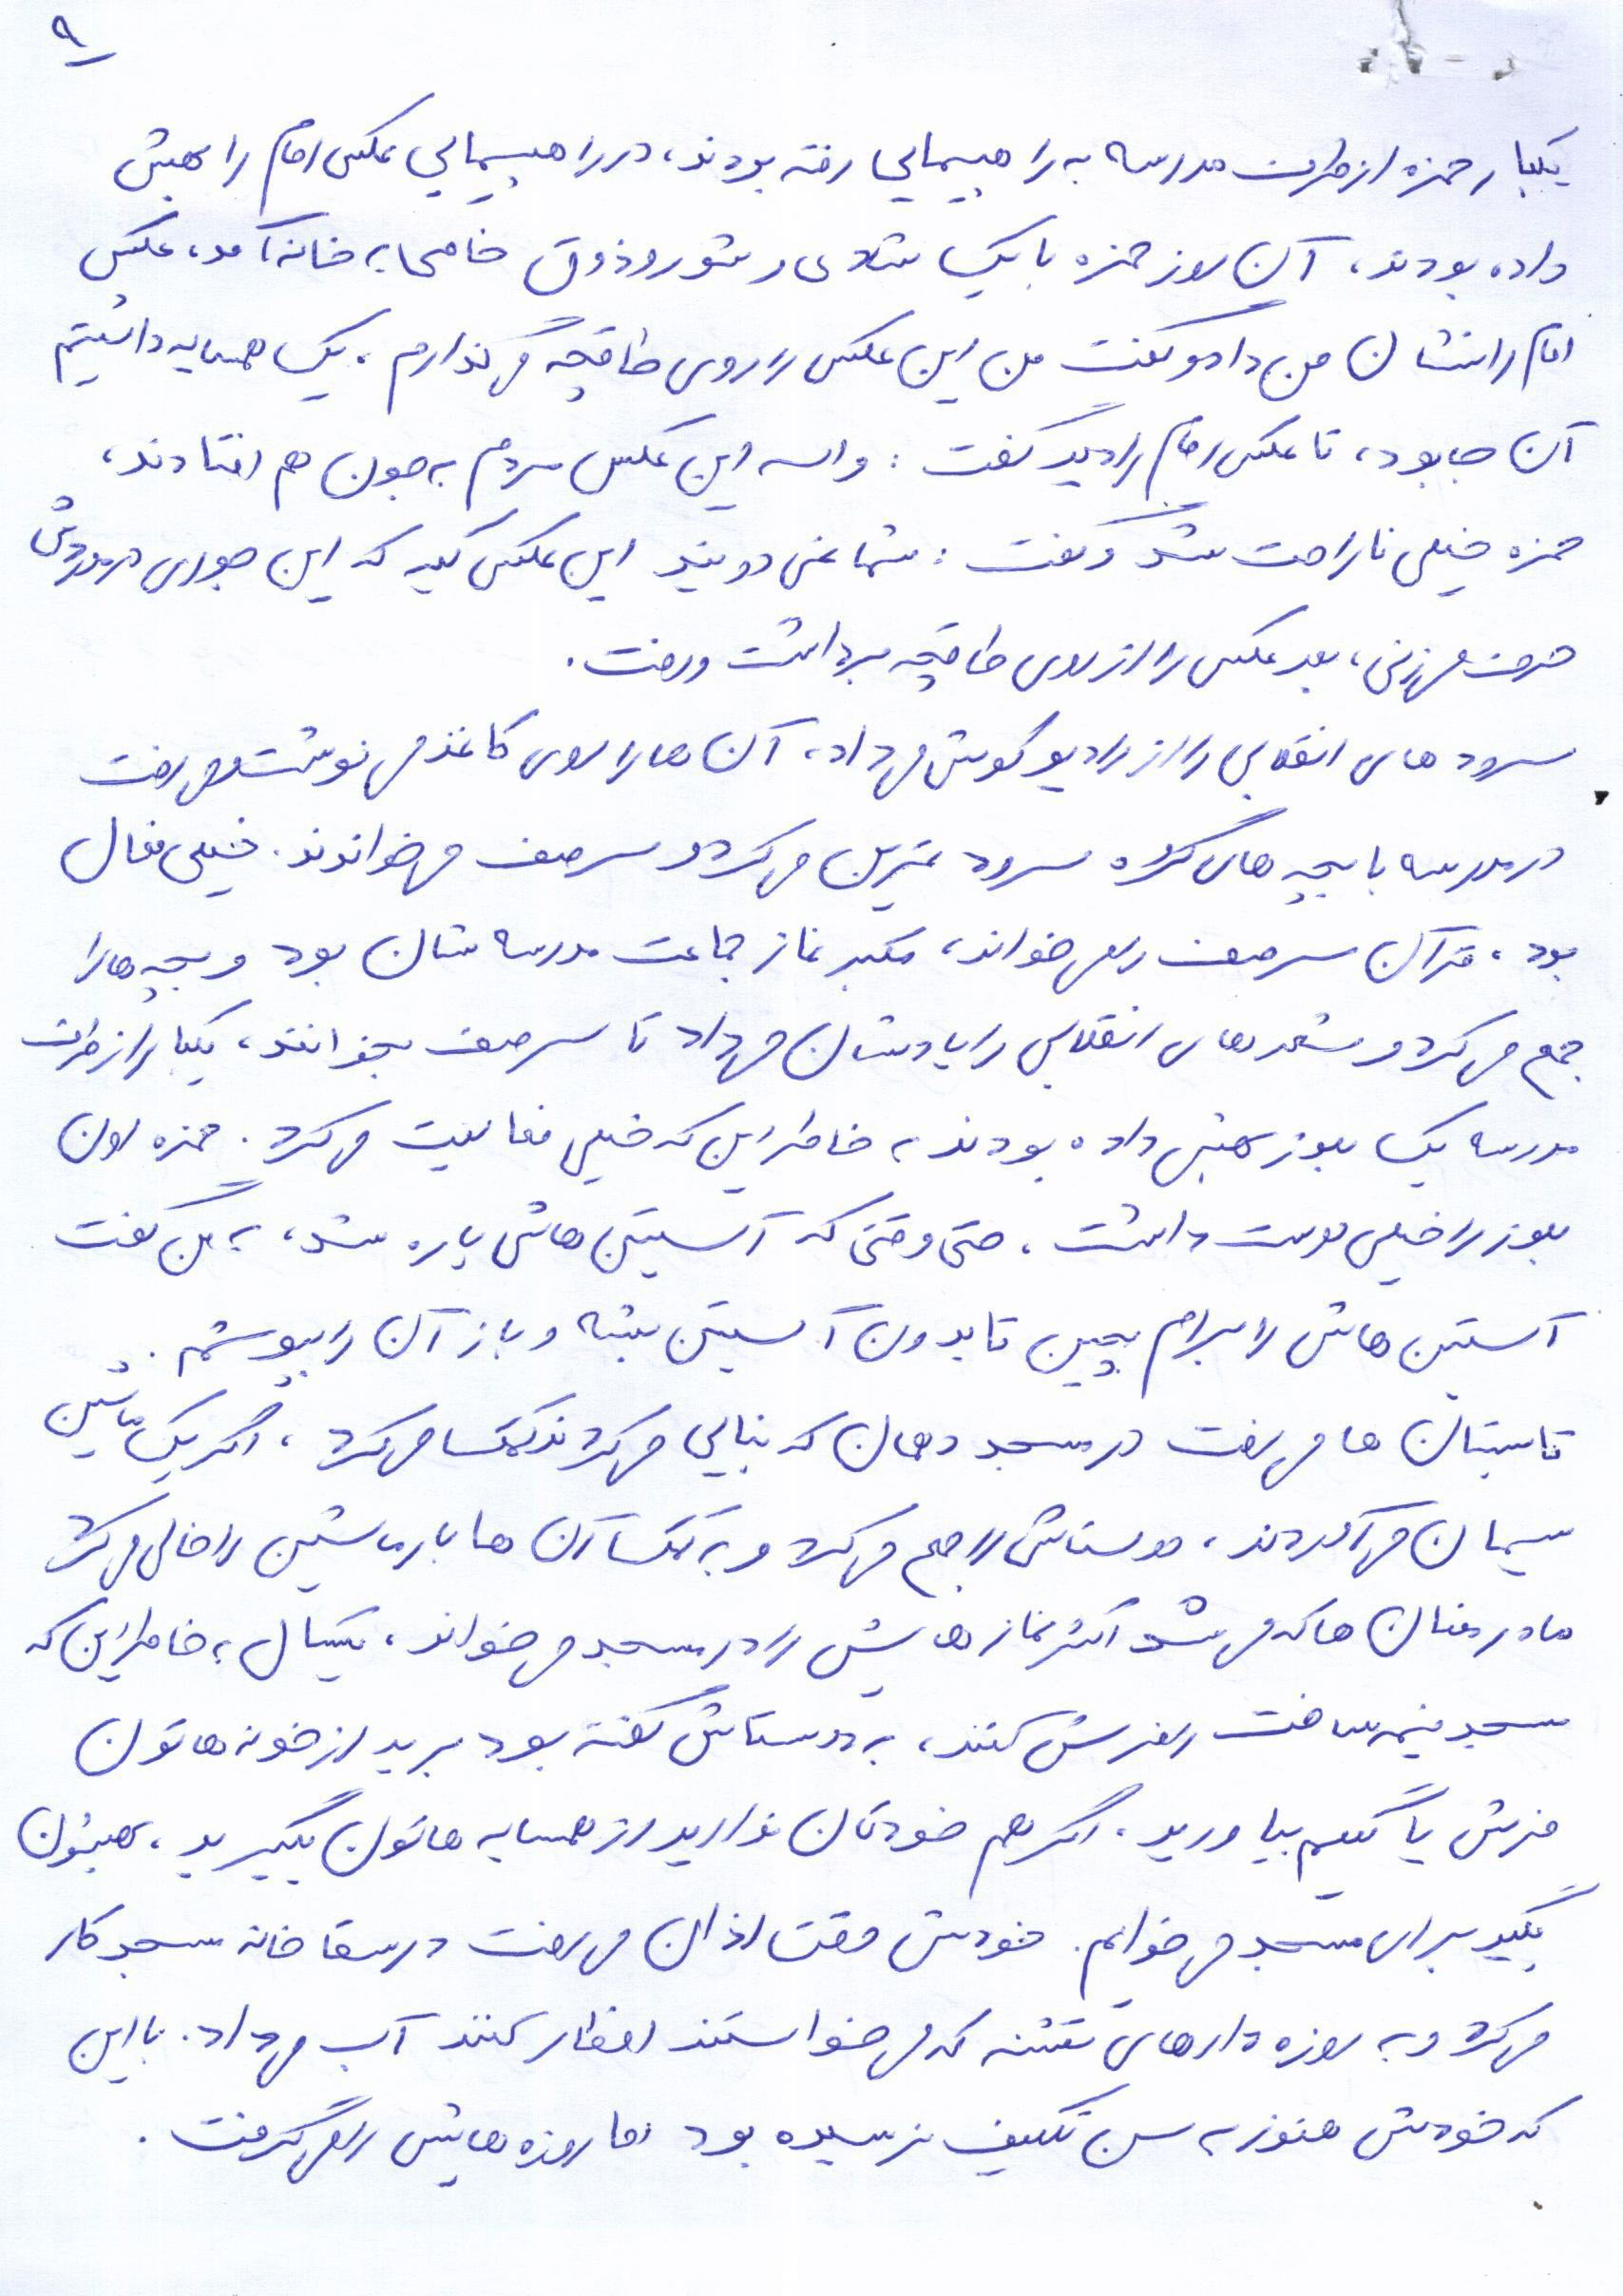 ۹
یکبار حمزه از طرف مدرسه به راهپیمایی رفته بودند، در راهپیمایی عکس امام را بهش
داده بودند، آن روز حمزه با یک شادی و شور و ذوق خاصی به خانه آمد، عکس
امام را نشان من داد و گفت من این عکس را روی طاقچه می گذارم، یک همسایه داشتیم
آن جا بود، تا عکس امام را دید گفت: واسه این عکس مردم به جون هم افتادند،
حمزه خیلی ناراحت شد و گفت: شما نمی دونید این عکس کیه که این جوری در موردش
حرف می زنی، بعد عکس را از روی طاقچه برداشت و رفت.
سرود های انقلابی را از رادیو گوش می داد، آن ها را روی کاغذ می نوشت و می رفت
در مدرسه با بچه های گروه سرود تمرین می کرد و سر صف می خواندند. خیلی فعال
بود، قرآن سر صف رو می خواند، مکبر نماز جماعت مدرسه شان بود و بچه ها را
جمع می کرد و شعرهای انقلابی را یادشان می داد تا سر صف بخوانند، یکبار از طرف
مدرسه یک بلوز بهش داده بودند به خاطر این که خیلی فعالیت می کرد. حمزه اون
بلوز را خیلی دوست داشت. حتی وقتی که آستین هاش پاره شد، به من گفت
آستین هاش را برام بچین تا بدون آستین بشه و باز آن را بپوشم.
تابستان ها می رفت در مسجد دهمان که بنایی می کردند کمک می کرد، اگر یک ماشین
سیمان می آوردند، دوستاش را جمع می کرد و به کمک آن ها بار ماشین را خالی می کرد
ماه رمضان ها که می شد اکثر نماز هایش را در مسجد می خواند، یکسال به خاطر این که
مسجد نیمه ساخت رو فرش کنند، به دوستاش گفته بود برید از خونه هاتون
فرش یا گلیم بیاورید. اگر هم خودتان ندارید از همسایه هاتون بگیرید، بهشون
بگید برای مسجد می خوایم. خودش وقت اذان می رفت در سقاخانه مسجد کار
می کرد و به روزه دارهای تشنه که می خواستند افطار کنند آب می داد. با این
که خودش هنوز به سن تکلیف نرسیده بود اما روزه هایش رو می گرفت.